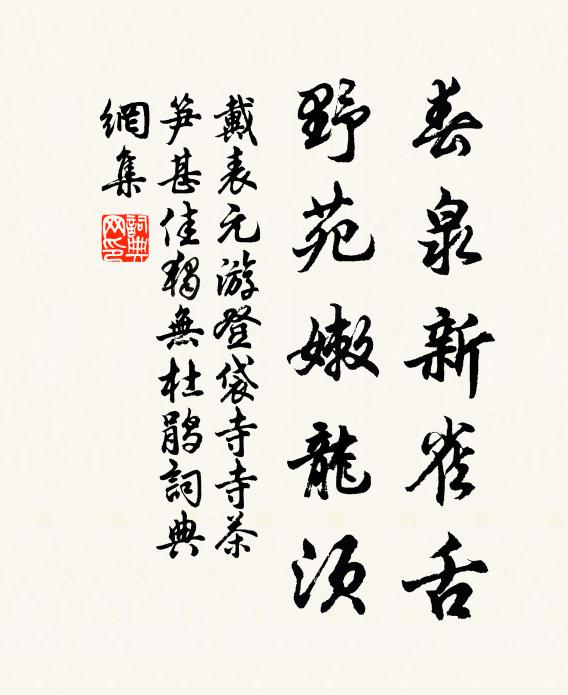 春泉新雀舌
野苑嫩龍須
戴表元游登袋寺寺茶
笋甚佳獨無杜鵑詞典
網集
詞典
网印